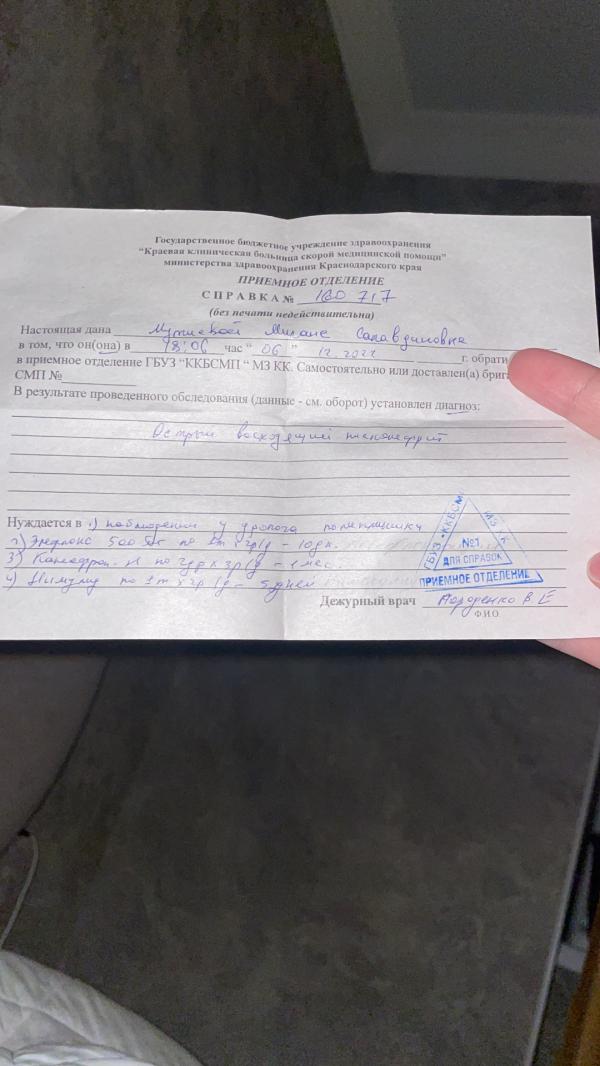 Государственное бюджетное учреждение здравоохранения
“Краевая клиническая больница скорой медицинской помощи”
министерства здравоохранения Краснодарского края
ПРИЕМНОЕ ОТДЕЛЕНИЕ
СПРАВКА № 160 717
(без печати недействительна)
Настоящая дана Милане Салавдиновне
в том, что он(она) в 18:06 час “ 06 ” 12.2022 г. обрати
в приемное отделение ГБУЗ “ККБСМП “ МЗ КК. Самостоятельно или доставлен(а) бриг
СМП №
В результате проведенного обследования (данные - см. оборот) установлен диагноз:
Острый восходящий пиелонефрит
Нуждается в 1) наблюдении у уролога поликлиники
2) 500 по 1т х 2р/д - 10дн.
3) Канефрон-Н по 2др х 3р/д - 1 мес.
4) Нимулид по 1т х 2р/д - 5 дней
ГБУЗ "ККБСМ МЗ К
№1
ДЛЯ СПРАВОК
ПРИЕМНОЕ ОТДЕЛЕНИЕ
Дежурный врач В. Е
ФИО